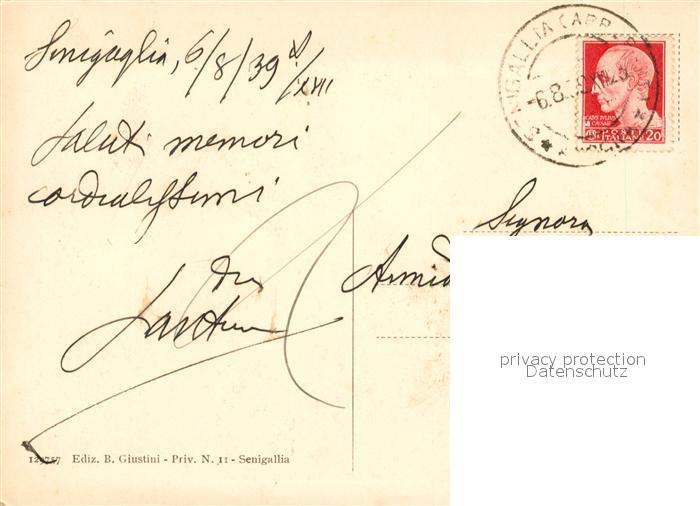 Senigaglia, 6/8/39 /XVII
Saluti memori
cordialissimi
Signora
Armid
SENIGALLIA
6.8.39.XVII
CAIVS IVLIVS
CAESAR
POSTE
ITALIANE 20
privacy protection
Datenschutz
Ediz. B. Giustini - Priv. N. 11 - Senigallia